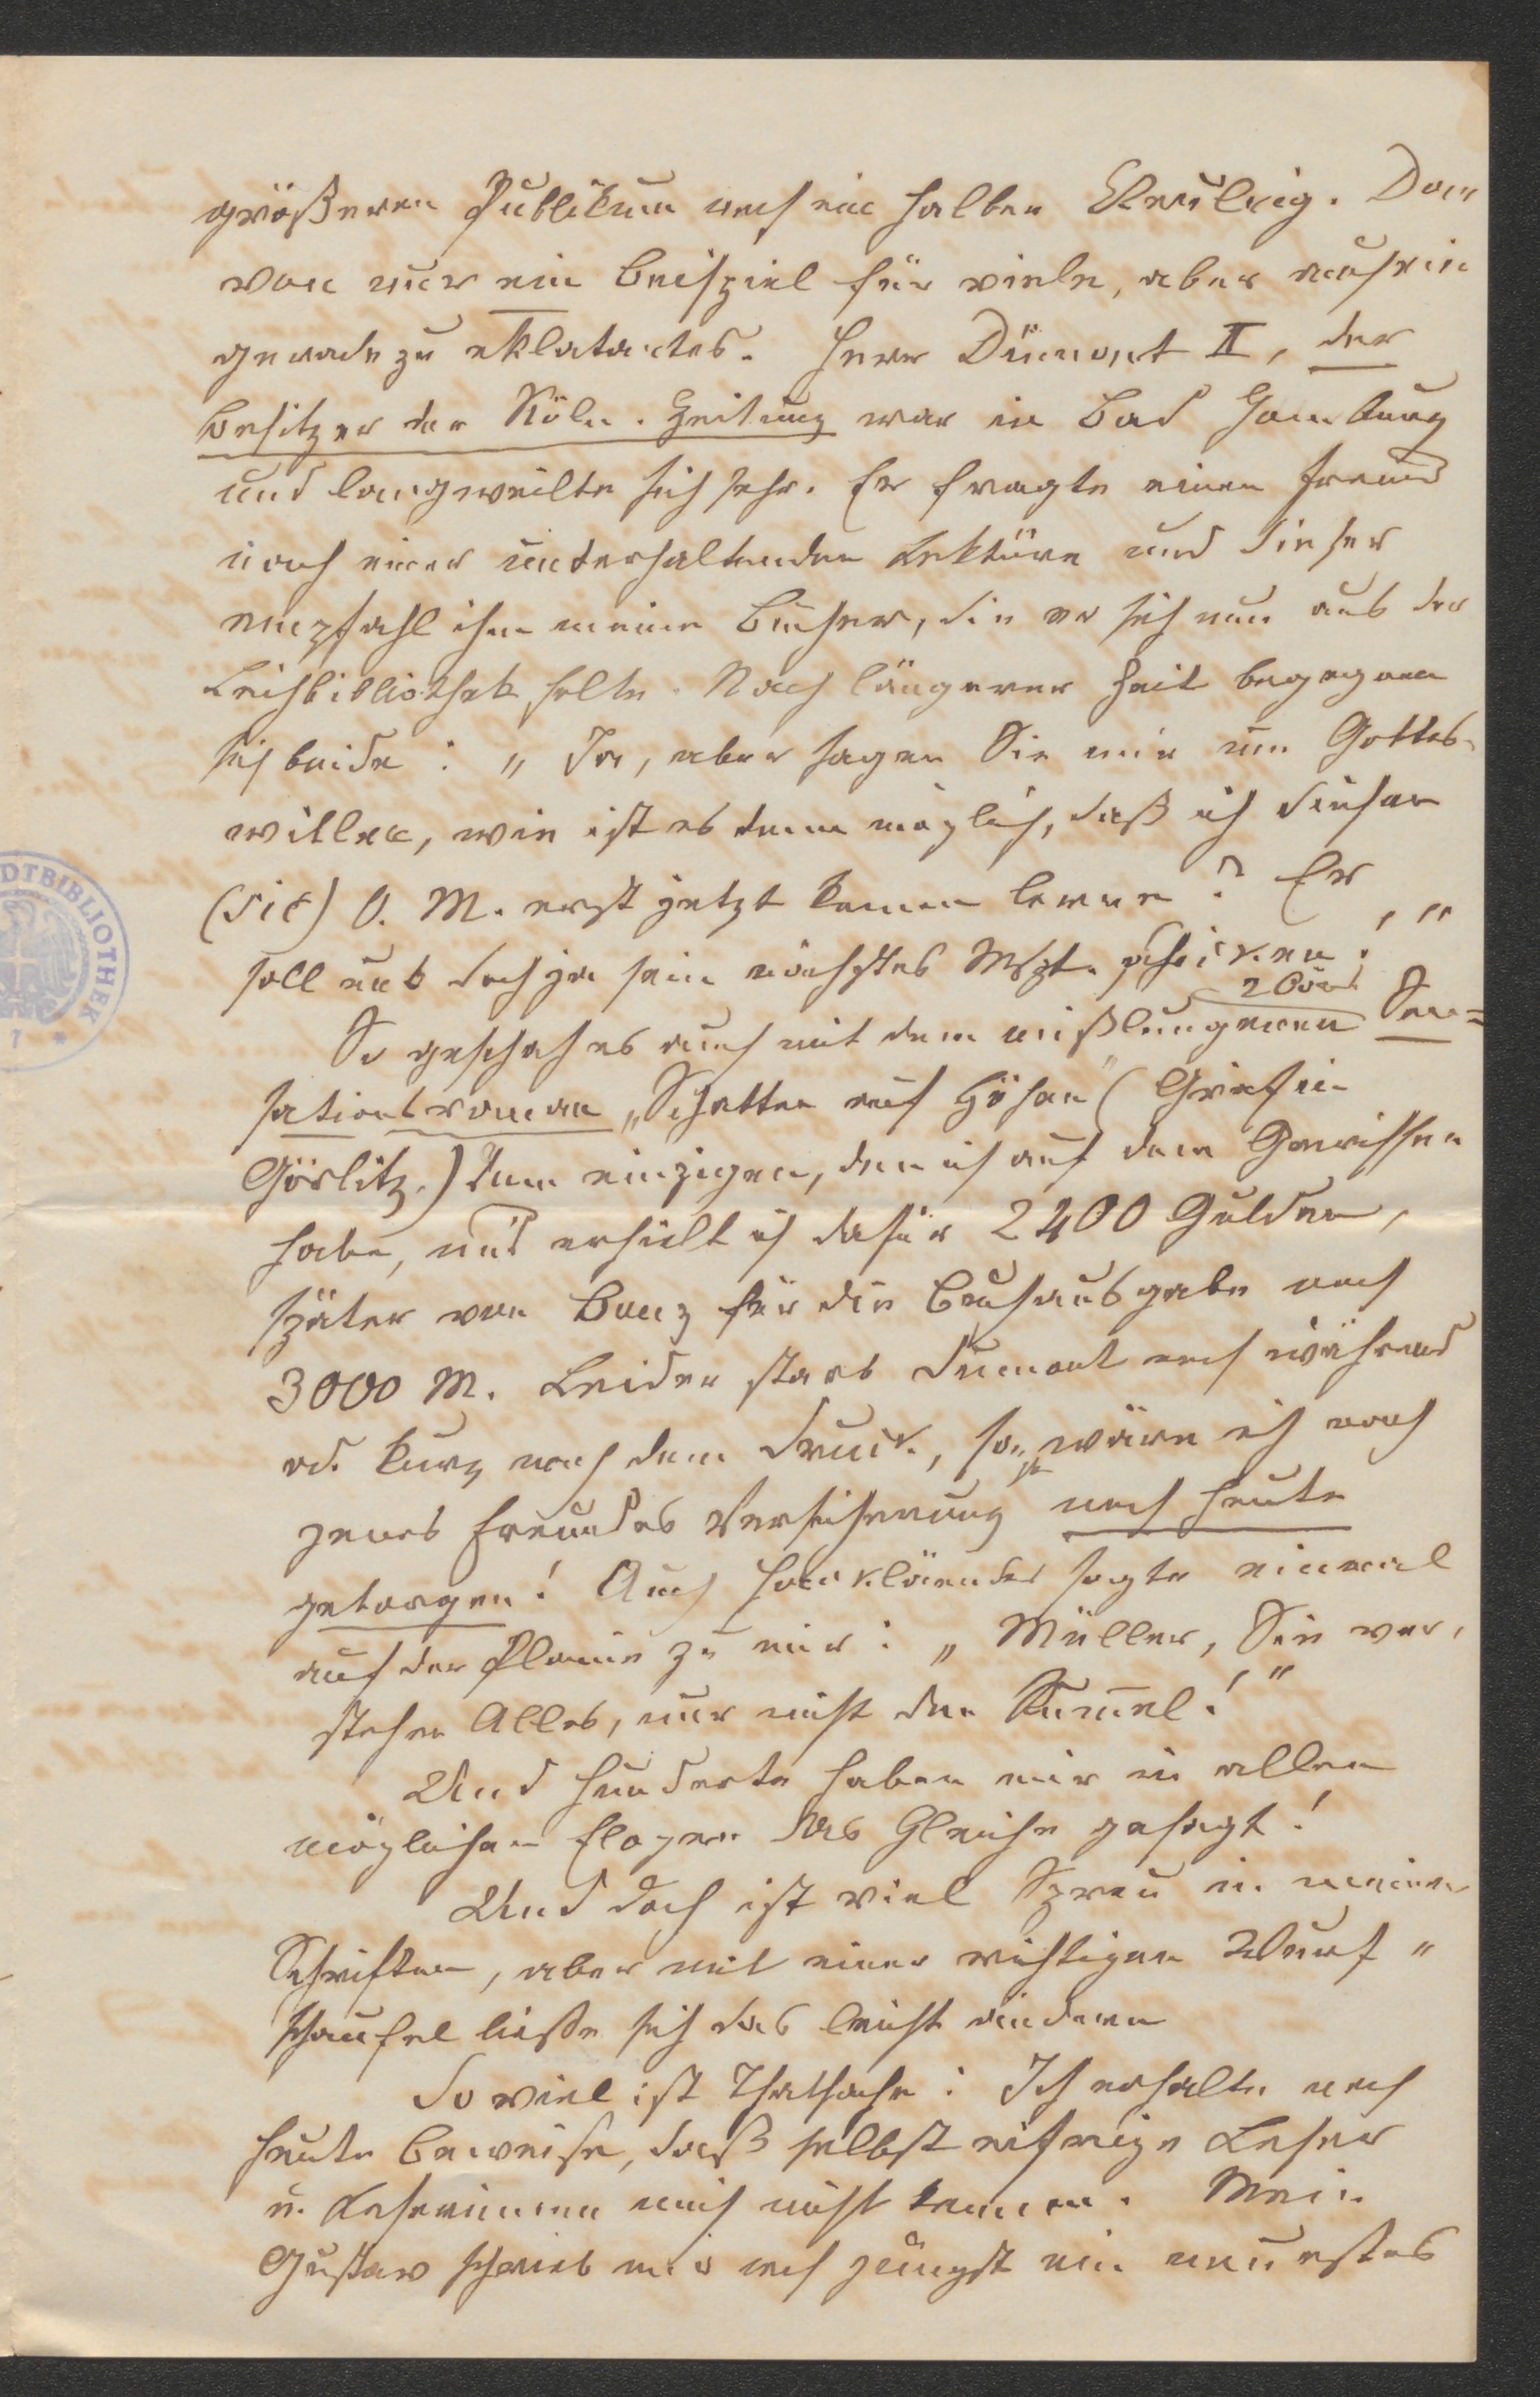 größeren Publikum noch ein halber Neuling. Da-
von nur ein Beispiel für viele, aber auch ein
geradezu eklatantes. Herr Dümont II, der
Besitzer der Köln. Zeitung war in Bad Homburg
und langweilte sich sehr. Er fragte einen Freund
nach einer unterhaltenden Lektüre und dieser
empfahl ihm meine Bücher, die er sich nun aus der
Leihbibliothek holte. Nach längerer Zeit begegnen
sich beide: „Ja, aber sagen Sie mir um Gottes-
willen, wie ist es denn möglich, daß ich diesen
(sic) O. M. erst jetzt kennen lerne? Er
soll uns doch ja sein nächstes Mszt. schicken!"
2 Bände
So geschah es auch mit dem mißlungenen Sen=
sationsroman „Schatten auf Höhen" (Gräfin
Görlitz.) dem einzigen, den ich auf dem Gewissen
habe, und erhielt ich dafür 2400 Gulden,
später von Bonz für die Buchausgabe noch
3000 M. Leider starb Dumont noch während
od. kurz nach dem Druck, sonst wäre ich nach
jenes Freundes Versicherung noch heute
geborgen! Auch Hackländer sagte einmal
auf der Planie zu mir: „Müller, Sie ver-
stehen Alles, nur nicht den Rummel!"
Und Hunderte haben mir in allen
möglichen Elogen das Gleiche gesagt!
Und doch ist viel Spreu in meinen
Schriften, aber mit einer richtigen Wurf-
schaufel ließe sich das leicht ändern
So viel ist Thatsache: Ich erhalte noch
heute Beweise, daß selbst eifrige Leser
u. Leserinnen mich nicht kennen. Mein
Gustav schrieb mir noch jüngst ein neuestes
DTBIBLIOTHEK
7 *